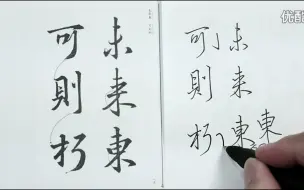 未来東
可則朽
未来東東
可則朽
优酷